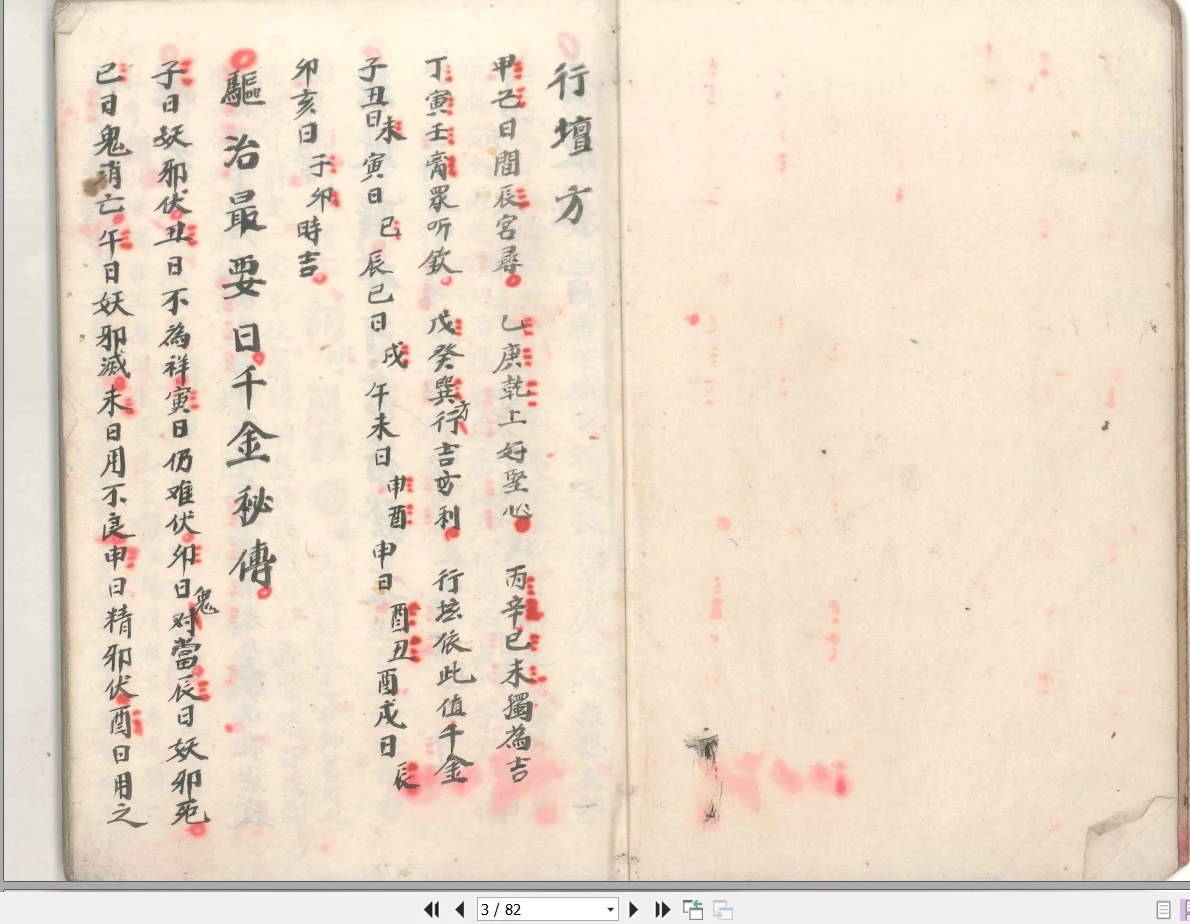 行壇方
甲己日間辰宮尋 乙庚乾上好堅心 丙辛巳未獨為吉
丁寅壬 眾所欽 戊癸巽方行吉方利 行坛依此值千金
子丑日未 寅日巳 辰巳日戌 午未日申酉 申日酉丑 酉戌日辰
卯亥日子卯時吉
驅治最要日千金秘傳
子日妖邪伏丑日不為祥寅日仍难伏卯日鬼对當辰日妖邪死
巳日鬼消亡午日妖邪滅未日用不良申日精邪伏酉日用之
3 / 82